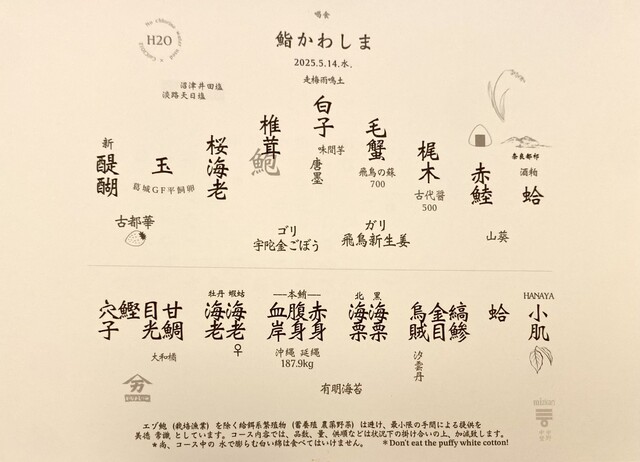 喝食
鮨かわしま
2025.5.14.水,
走梅雨鳴土
H2O
沼津井田塩
淡路天日塩
奈良都祁
酒粕
蛤
赤鯥
梶木
古代醤
500
毛蟹
飛鳥の蘇
700
白子
味間芋
唐墨
椎茸
鮑
桜海老
玉
葛城GF平飼卵
新
醍醐
山葵
ガリ
飛鳥新生姜
ゴリ
宇陀金ごぼう
古都華
HANAYA
小肌
蛤
縞鯵
金目
烏賊
汐雲丹
北 黒
海栗
海栗
—本鮪—
赤身
腹身
血岸
沖縄 延縄
187.9kg
牡丹 蝦蛄
海老
♀
海老
甘鯛
目光
鰹
穴子
大和橘
有明海苔
エゾ鮑 (栽培漁業) を除く給餌系繁殖物 (蓄養殖 農薬野菜) は避け、最小限の手間による提供を
美徳 常識 としています。コース内容では、品数、量、供順などは状況下の掛け合いの上、加減致します。
*尚、コース中の 水で膨らむ白い綿は食べてはいけません。 *Don't eat the puffy white cotton!